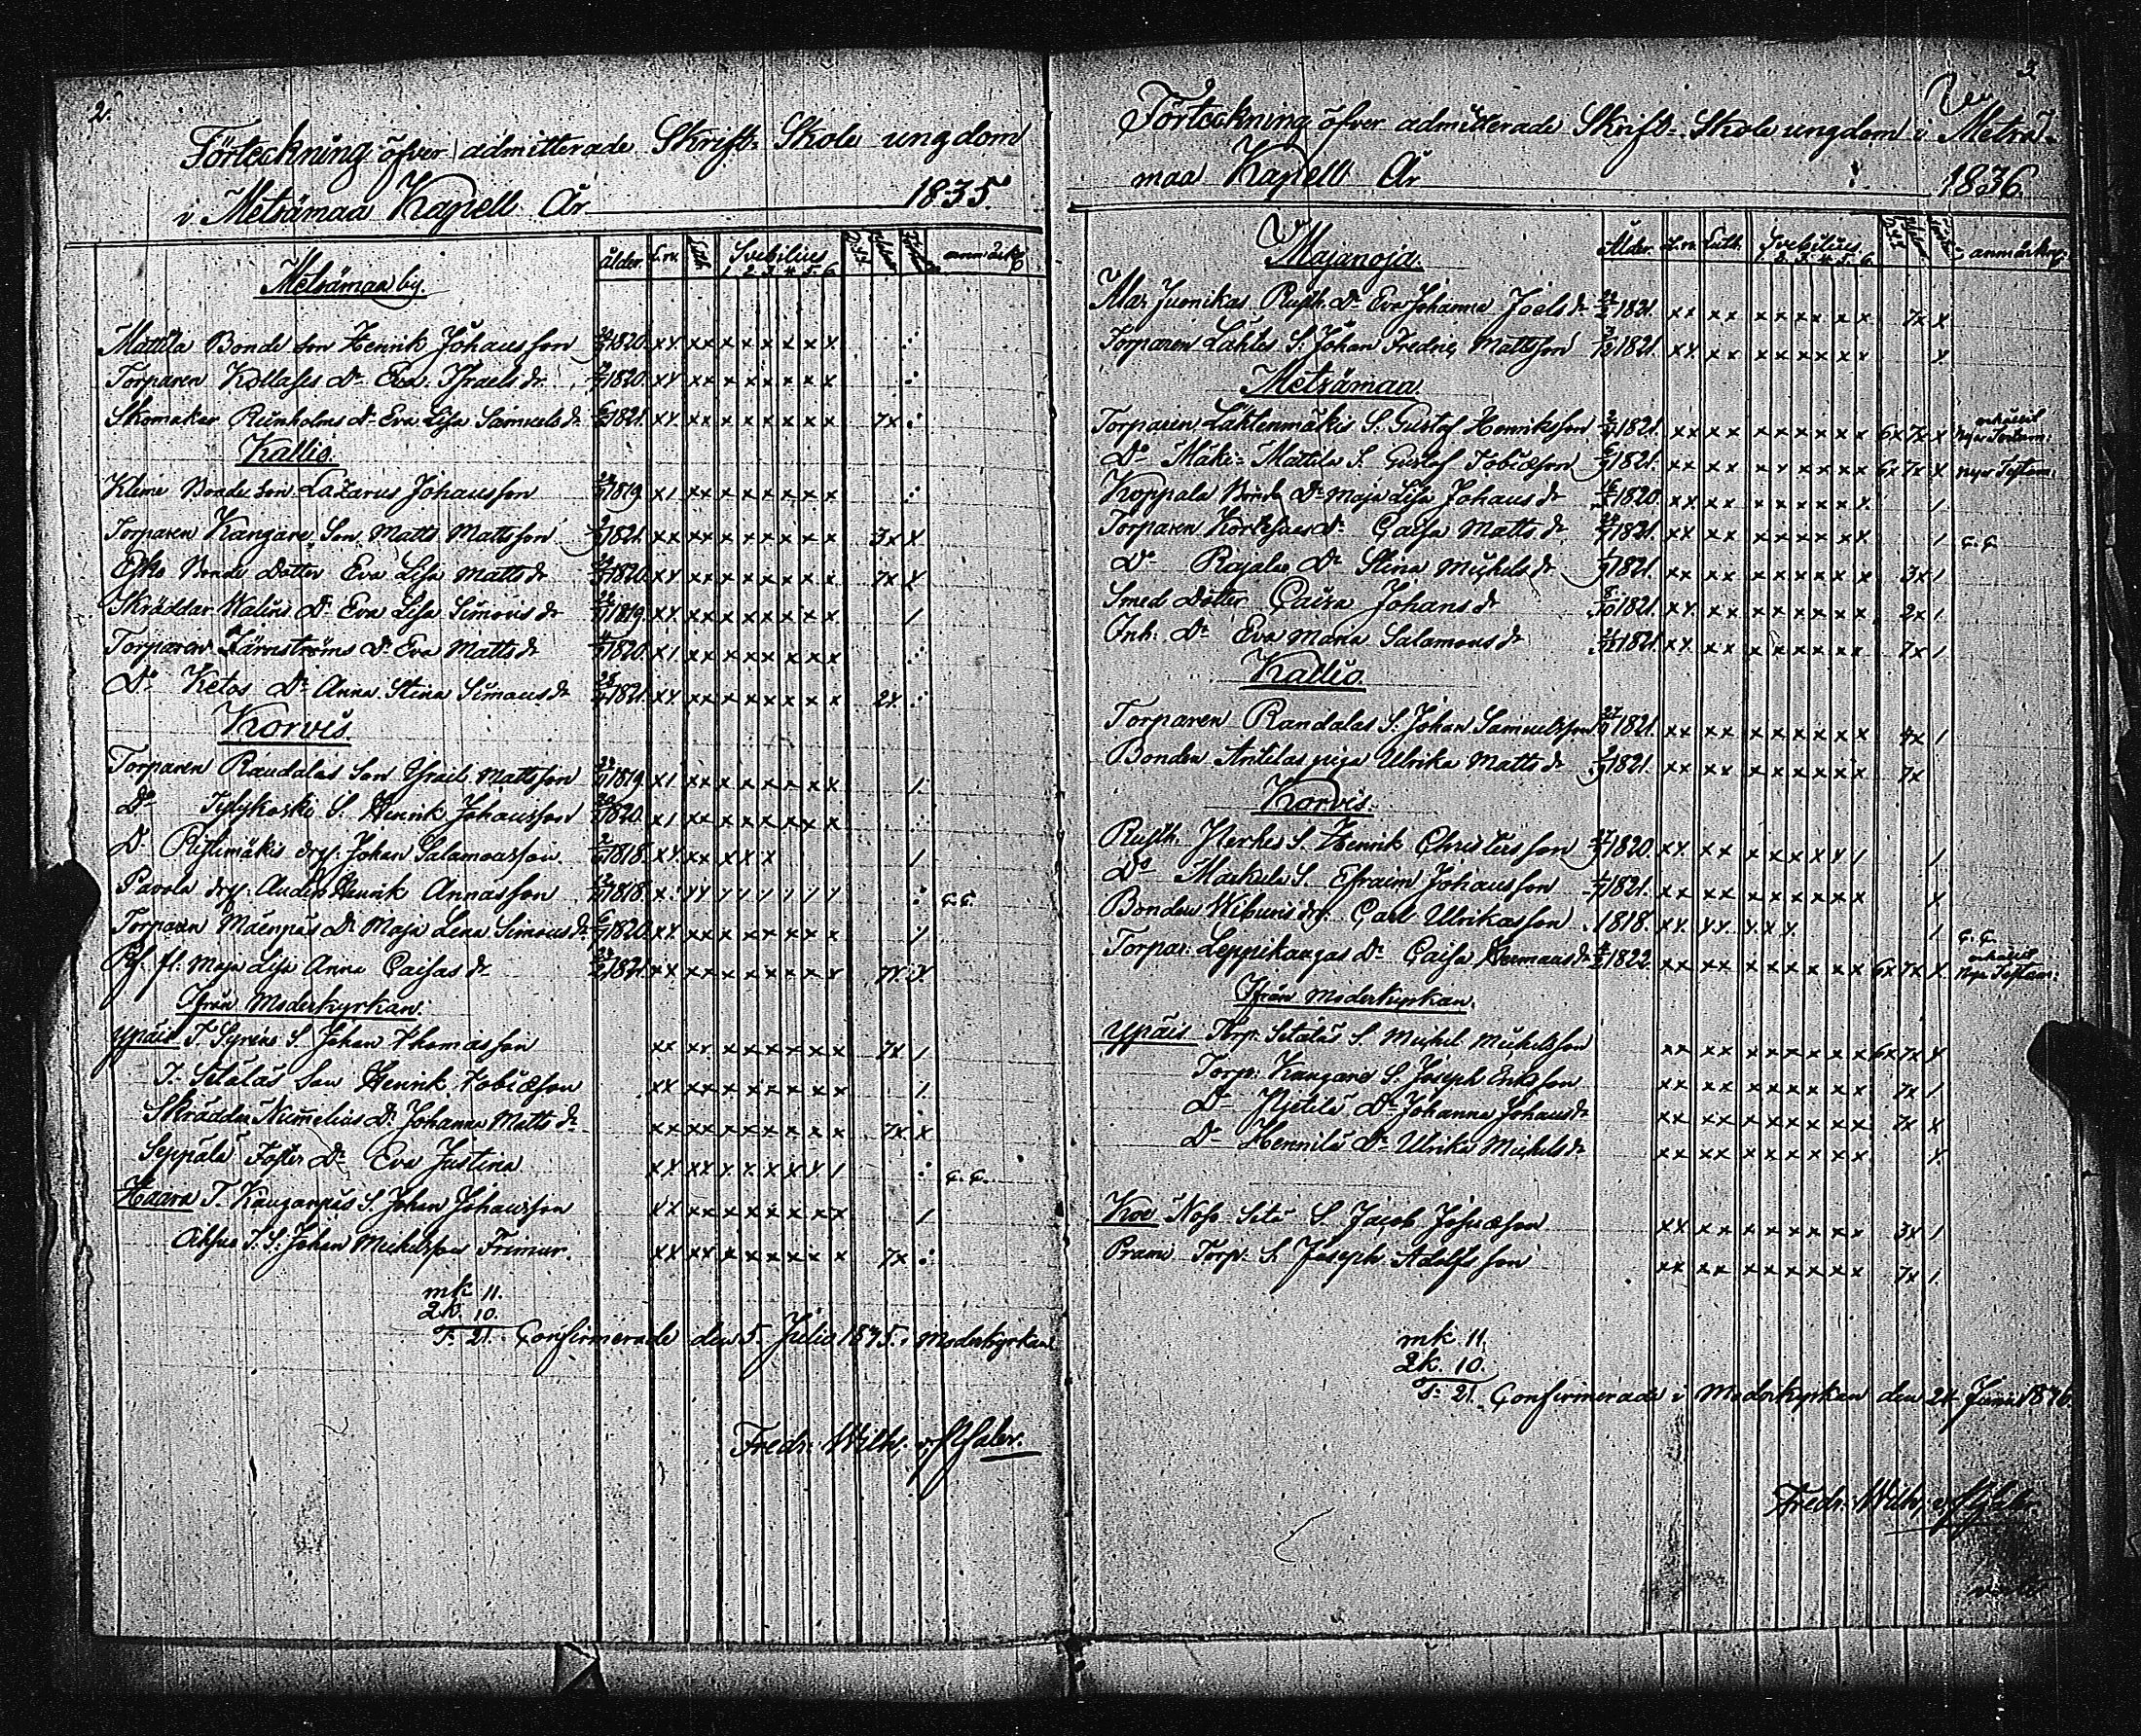 2.
Förteckning öfver admitterade Skrift-Skole ungdom
i Metsämaa Kapell År 1835.
Metsämaa by. Ålder. Luth. Svebilius anmärkn
1. 2. 3. 4. 5. 6.
Mattila Bonde son Henrik Johansson 1820. xx xx x x x x x x
Torparen Kollases Dr Eva Israels dr 1820. xx xx x x x x x x
Skomakar Renholms Dr Eva Lisa Samuels dr 1821. xx xx x x x x x x 7x
Kallio.
Kleme Bonde son Lazarus Johansson 1819. x1 xx x x x x x x
Torparen Kangare Son Matts Mattsson 1821. xx xx x x x x x x 3x x
Bonde Dotter Eva Lisa Matts dr 1820. xx xx x x x x x x 7x x
Skräddar Walins Dr Eva Lisa Simons dr 1819. xx xx x x x x x x 1
Torparen Järnströms Dr Eva Matts dr 1820. x1 xx x x x x x x
Do Ketos Dr Anna Stina Simons dr 1821. xx xx x x x x x x 2x
Korvis.
Torparen Raudalas Son Israel Mattsson 1819. x1 xx x x x x x x 1
Do S. Henrik Johansson 1820. x1 xx x x x x x x
Do Ristimäkis drg. Johan Salamonsson 1818. xx xx x x x 1
Pavola drg. Anders Henrik Annasson 1818. x. xx / / / / / / c.c.
Torparen Mäenpäs Dr Maja Lena Simons dr 1820. xx xx x x x x x x 1
fl. Maja Lisa Anna Caisas dr 1821. xx xx x x x x x x 7x x
Ifrån Moderkyrkan.
Ypäis T. Syrens S. Johan Thomasson xx xx x x x x x x 7x 1
T. Sitäläs Son Henrik Tobiasson xx xx x x x x x x 1
Skräddar Nummelius Dr Johanna Matts dr xx xx x x x x x x 7x x
Seppälä Foster Dr Eva Justina xx xx x x x x x 1 c.c.
Haara T. Kauganpäs S. Johan Johansson xx xx x x x x x x 1
T. S. Johan Mickelsson Frimur. xx xx x x x x x x 7x
mk 11.
2k. 10.
S: 21. Confirmerade den 5 Julii 1835. i Moderkyrkan
Fredr: Wilh:
3.
Förteckning öfver admitterade Skrift-Skole ungdom i Metsä-
maa Kapell År 1836.
Majanoja. Ålder. Luth. Svebilius anmärkn
1. 2. 3. 4. 5. 6.
Juonikas Rusth. Dr Eva Johanna Joels dr 1821. xx xx x x x x x x 7x x
Torparen Lähtes S. Johan Fredric Mattsson 1821. xx xx x x x x x x x
Metsämaa
Torparen Lähtenmäkis S. Gustaf Henriksson 1821. xx xx x x x x x x 6x 7x x erhållit Nya Testam:
Do Mäki-Mattila S. Gustaf Tobiasson 1821. xx xx x x x x x x 6x 7x x nya Testam:
Koppala Bonde Dr Maja Lisa Johans dr 1820. xx xx x x x x x x 1
Torparen Dr Caisa Matts dr 1821. xx xx x x x x x x 1 c.c.
Do Rajalas Dr Stina Michels dr 1821. xx xx x x x x x x 3x 1
Smed Dotter Caisa Johans dr 1821. xx xx x x x x x x 2x 1
Inh. Dr Eva Maria Salamons dr 1821. xx xx x x x x x x 7x 1
Kallio
Torparen Randalas S. Johan Samuelsson 1821. xx xx x x x x x x 4x 1
Bonden Antilas piga Ulrika Matts dr 1821. xx xx x x x x x x 7x
Korvis.
Rusth. Yerkes S. Henrik Christersson 1820. xx xx x x x x x 1 1
Do Markula S. Efraim Johansson 1821. xx xx x x x x x x x
Bonden Wiburis drg. Carl Ulrikasson 1818. xx xx x x x 1 c.c.
Torpar. Leppikangas Dr Caisa Hermans dr 1822. xx xx x x x x x x 6x 7x x erhållit Nya Testam:
Ifrån Moderkyrkan.
Ypäis Torp. Sitäläs S. Michel Mickelsson xx xx x x x x x x 6x 7x x
Torp: Kangare S. Joseph Eriksson xx xx x x x x x x 7x 1
Do Dr Johanna Johans dr xx xx x x x x x x 7x x
Do Hennilä Dr Ulrika Michels dr xx xx x x x x x x x
Koe S. Jacob Josuasson xx xx x x x x x x 3x 1
Torp. S. Joseph Adolfsson xx xx x x x x x x 7x 1
mk 11.
2k. 10.
S: 21. Confirmerade i Moderkyrkan den 24 Junii 1836.
Fredr: Wilh: